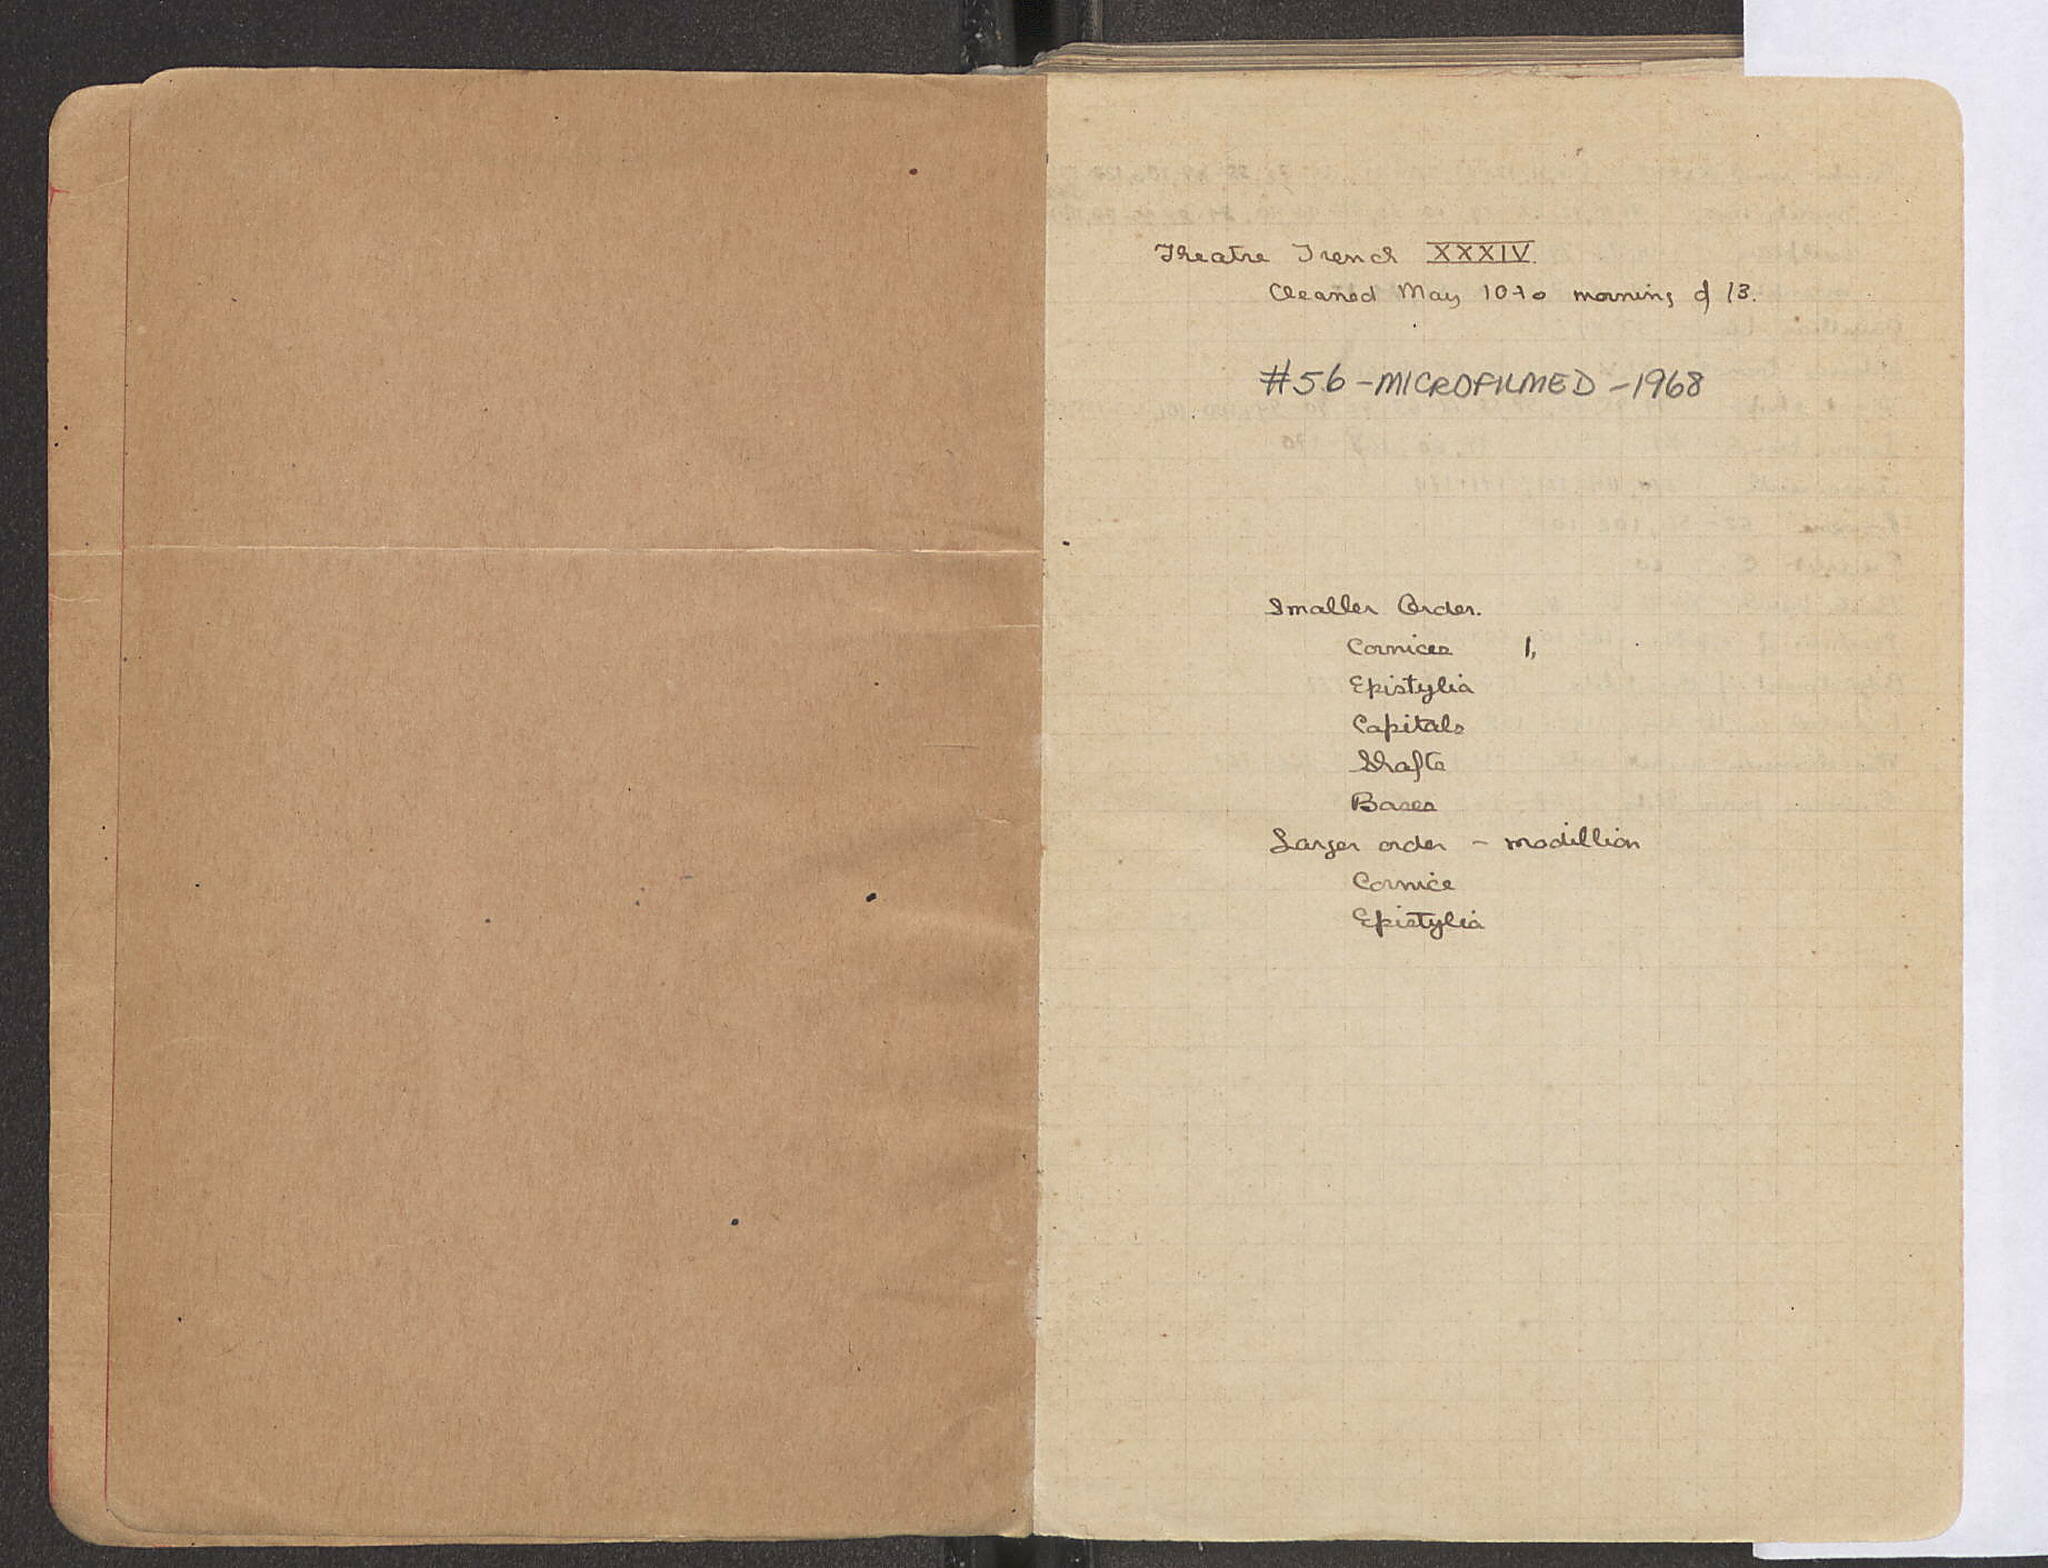 Theatre Trench XXXIV
Cleaned May 10 to morning of 13.
#56 - MICROFILMED - 1968
Smaller Order.
Cornices 1,
Epistylia
Capitals
Shafts
Bases
Larger order - modillion
Cornice
Epistylia